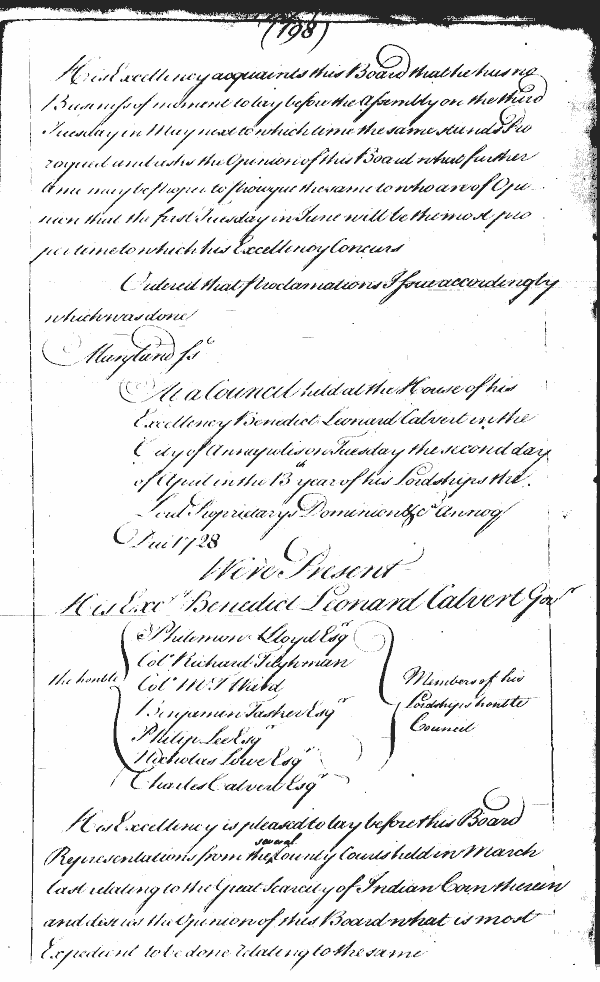 (198)
His Excellency acquaints this Board that he has no
Business of moment to lay before the Assembly on the third
Tuesday in May next to which time the same stands Pro
rogued and asks the Opinion of this Board what further
time may be proper to prorogue the same to who are of Opi-
nion that the first Tuesday in June will be the most pro
per time to which his Excellency Concurs
Ordered that Proclamations Issue accordingly
which was done
Maryland ss
At a Council held at the House of his
Excellency Benedict Leonard Calvert in the
City of Annapolis on Tuesday the second day
of April in the 13th year of his Lordships the
Lord Proprietarys Dominion &ca Annoq
Dni 1728
Were Present
His Excy Benedict Leonard Calvert Govr
Philemon Lloyd Esqr
Col Richard Tilghman
the honble Col M T Ward Members of his
Benjamin Tasker Esqr Lordships honble
Philip Lee Esqr Council
Nicholas Lowe Esqr
Charles Calvert Esqr
His Excellency is pleased to lay before this Board
several
Representations from the County Courts held in March
last relating to the Great Scarcity of Indian Corn therein
and desires the Opinion of this Board what is most
Expedient to be done relating to the same